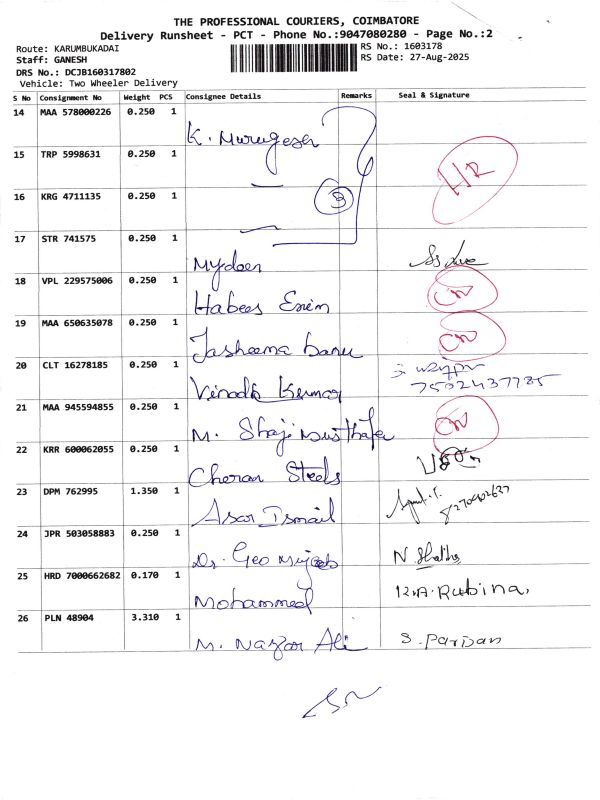 THE PROFESSIONAL COURIERS, COIMBATORE
Delivery Runsheet - PCT - Phone No.:9047080280 - Page No.:2
Route: KARUMBUKADAI
RS No.: 1603178
Staff: GANESH
RS Date: 27-Aug-2025
DRS No.: DCJB160317802
Vehicle: Two Wheeler Delivery
S No Consignment No Weight PCS Consignee Details Remarks Seal & Signature
14 MAA 578000226 0.250 1 K. Murugesan
15 TRP 5998631 0.250 1
16 KRG 4711135 0.250 1 3
17 STR 741575 0.250 1 Mydeen
18 VPL 229575006 0.250 1 Habees
19 MAA 650635078 0.250 1 Jasheema banu
20 CLT 16278185 0.250 1 Vinodh Kumar
21 MAA 945594855 0.250 1 M. Shaji musthafa
22 KRR 600062055 0.250 1 Cheran Steels
23 DPM 762995 1.350 1 Asar Ismail
24 JPR 503058883 0.250 1 Dr. Geo Mujeeb
25 HRD 7000662682 0.170 1 Mohammed Rubina,
26 PLN 48904 3.310 1 M. Nazar Ali S. Parsan